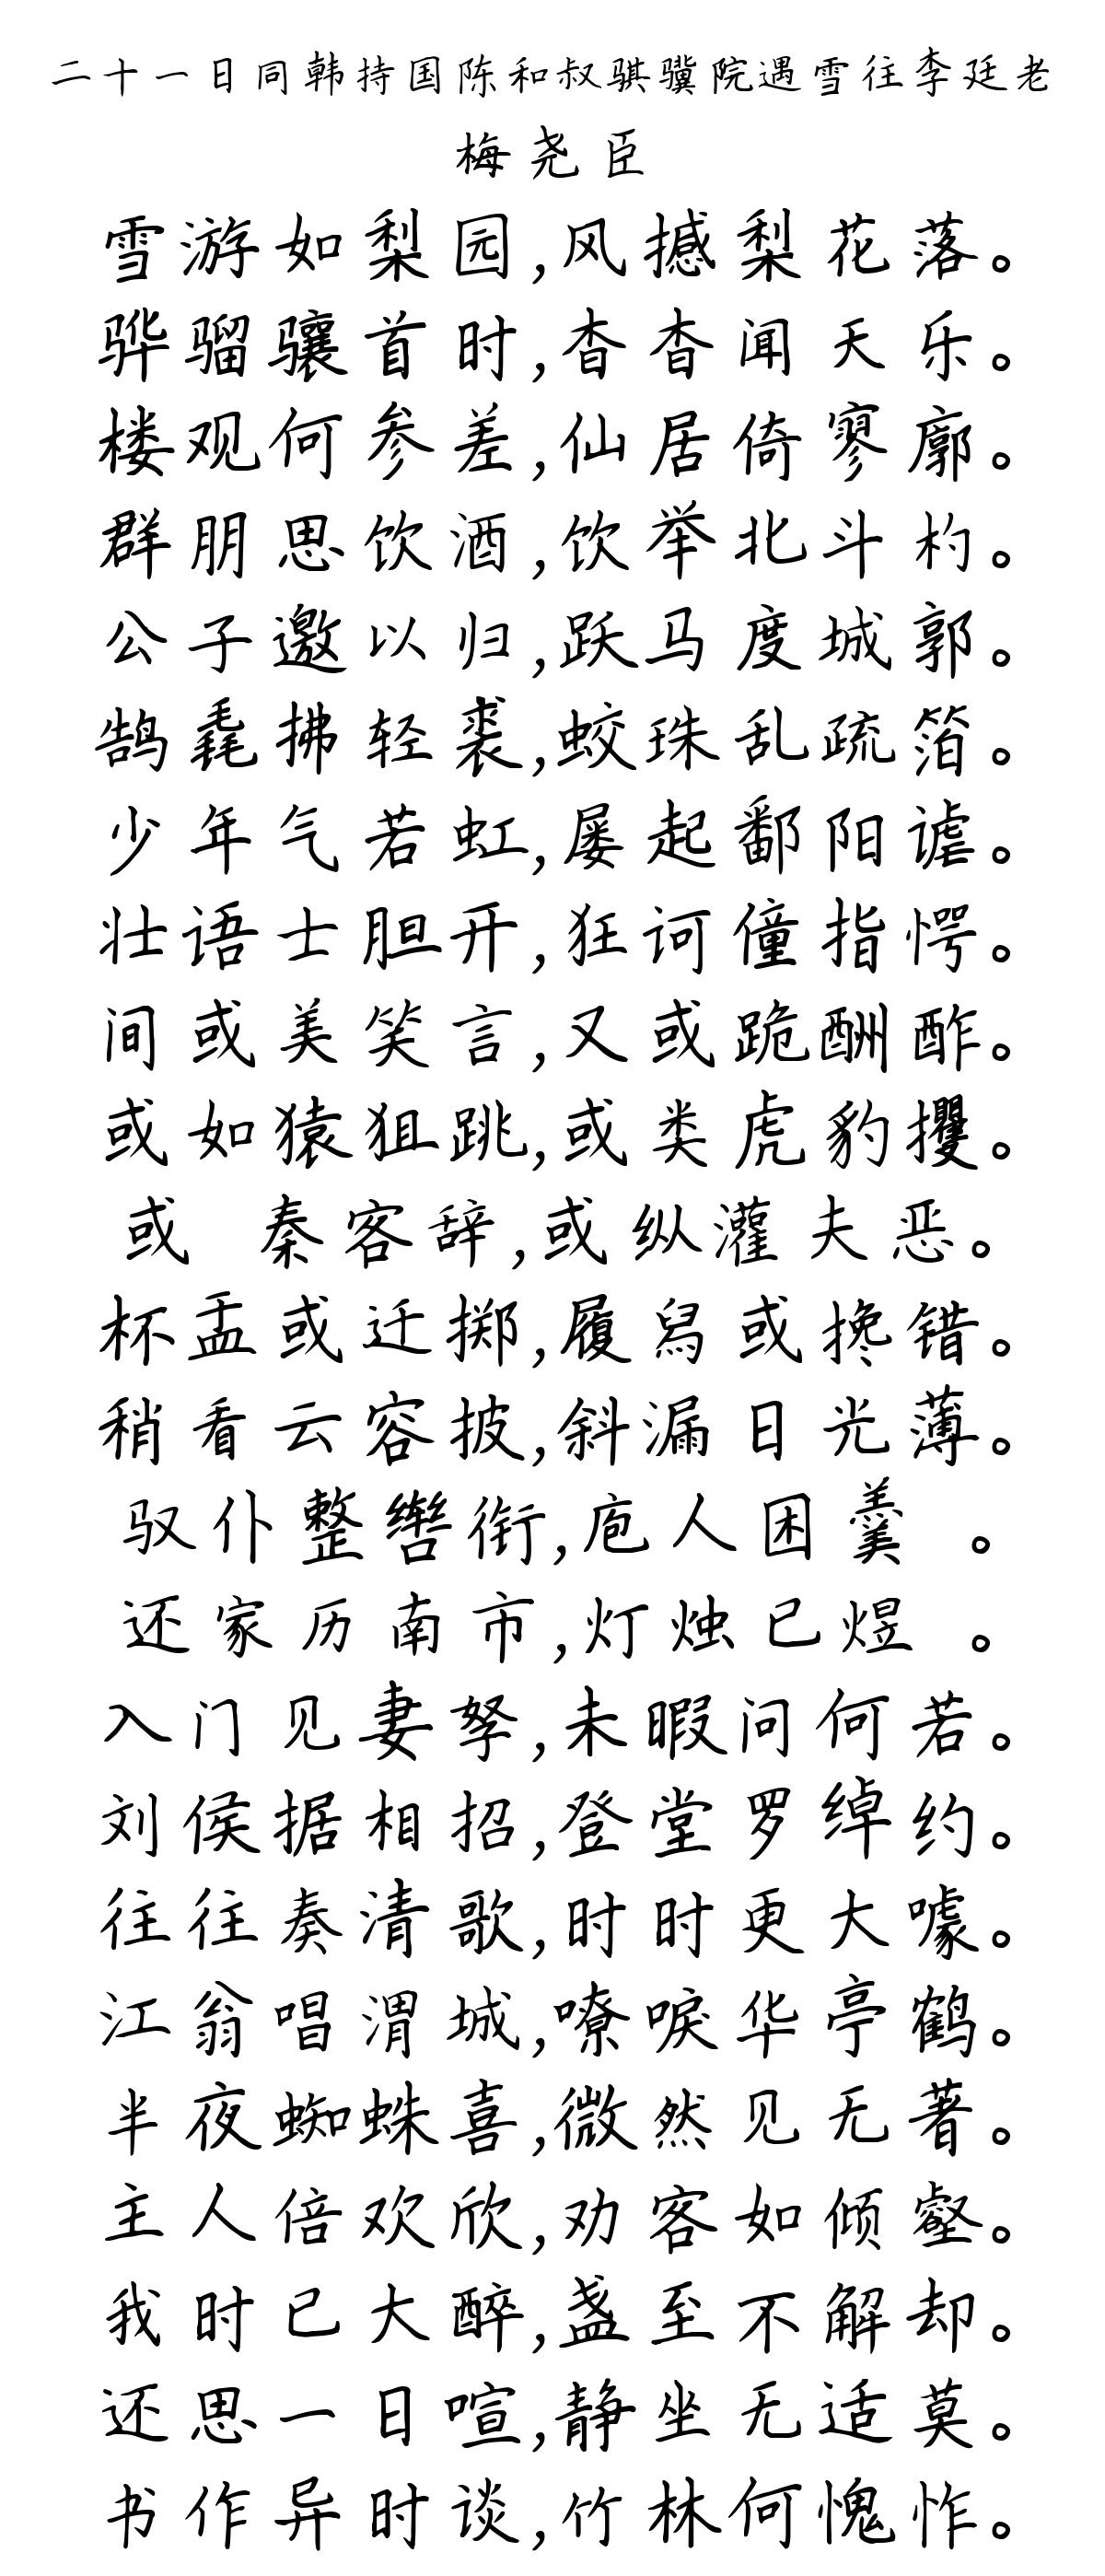 二十一日同韩持国陈和叔骐骥院遇雪往李廷老
梅尧臣
雪游如梨园,风撼梨花落。
骅骝骧首时,杳杳闻天乐。
楼观何参差,仙居倚寥廓。
群朋思饮酒,饮举北斗杓。
公子邀以归,跃马度城郭。
鹄毳拂轻裘,蛟珠乱疏箔。
少年气若虹,屡起鄱阳谑。
壮语士胆开,狂诃僮指愕。
间或美笑言,又或跪酬酢。
或如猿狙跳,或类虎豹攫。
或 秦客辞,或纵灌夫恶。
杯盂或迁掷,履舄或搀错。
稍看云容披,斜漏日光薄。
驭仆整辔衔,庖人困羹 。
还家历南市,灯烛已煜 。
入门见妻孥,未暇问何若。
刘侯据相招,登堂罗绰约。
往往奏清歌,时时更大噱。
江翁唱渭城,嘹唳华亭鹤。
半夜蜘蛛喜,微然见无著。
主人倍欢欣,劝客如倾壑。
我时已大醉,盏至不解却。
还思一日喧,静坐无适莫。
书作异时谈,竹林何愧怍。